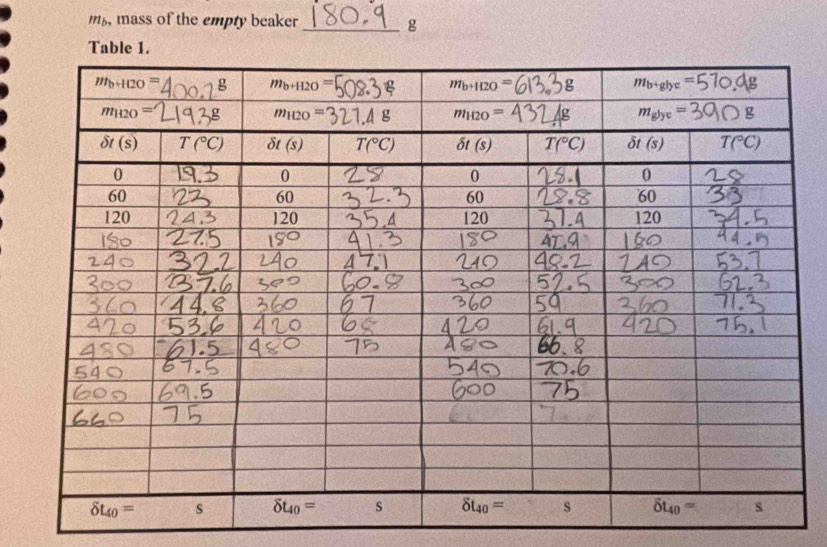 m_b, mass of the empty beaker 180.9 g
Table 1.
m_b+H2O = 400.2 g m_b+H2O = 508.3 g m_b+H2O = 613.3 g m_b+glyc = 570.9 g
m_H2O = 219.3 g m_H2O = 327.4 g m_H2O = 432.4 g m_glyc = 390 g
δt (s) T (°C) δt (s) T(°C) δt (s) T(°C) δt (s) T(°C)
0 19.3 0 28 0 28.1 0 28
60 23 60 32.3 60 28.8 60 33
120 24.3 120 35.4 120 37.4 120 34.5
180 27.5 180 41.3 180 180 44.5
240 32.2 240 47.1 240 48.2 240 53.7
300 37.6 300 60.8 300 52.5 300 62.3
360 44.8 360 67 360 59 360 71.3
420 53.6 420 68 420 61.9 420 75.1
480 61.5 480 75 480 66.8
540 67.5 540 70.6
600 69.5 600 75
660 75
δt40 = s δt40 = s δt40 = s δt40 = s